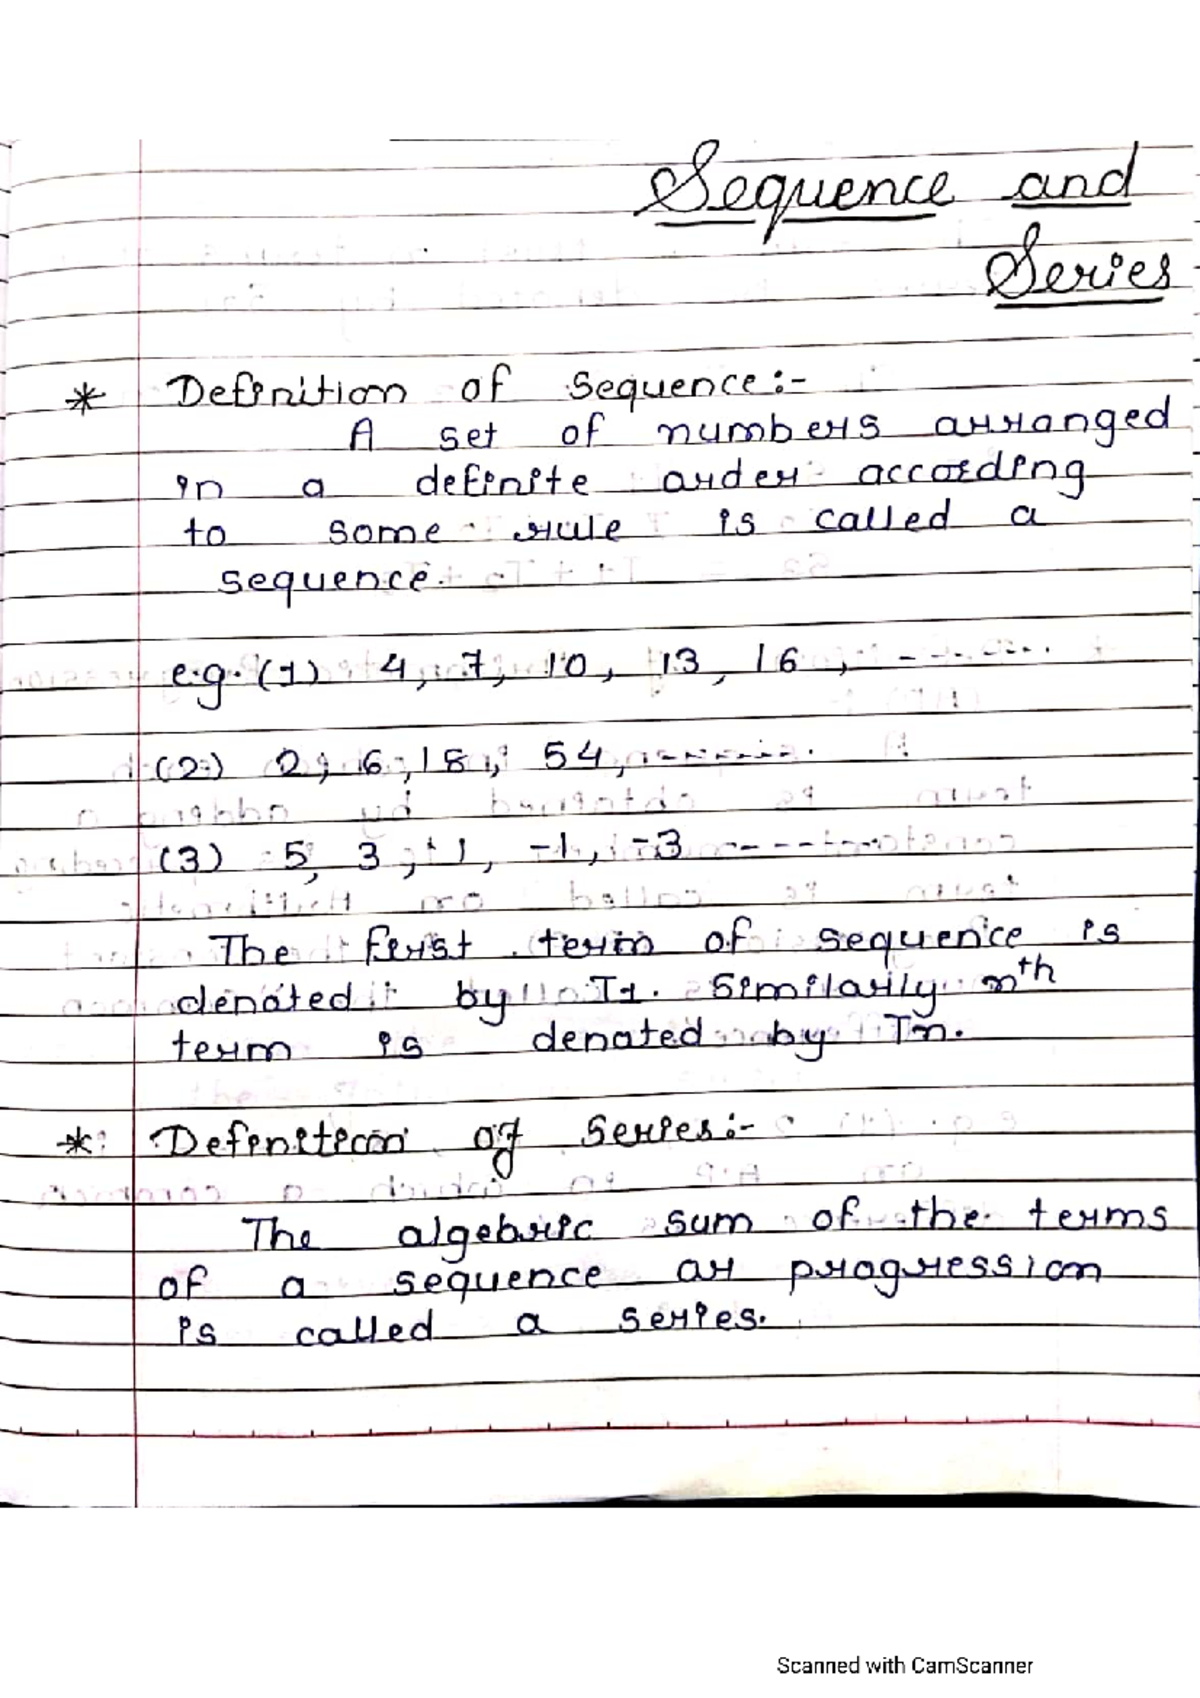 Sequence and
Series
* Definition of Sequence:-
A set of numbers arranged
in a definite order according
to some rule is called a
sequence.
e.g. (1) 4, 7, 10, 13, 16, -------...
(2) 2, 6, 18, 54, --------.
(3) 5, 3, +1, -1, -3 -------
The first term of sequence is
denoted by T1. Similarily nth
term is denoted by Tn.
* Definition of Series:-
The algebric sum of the terms
of a sequence or progression
is called a series.
Scanned with CamScanner